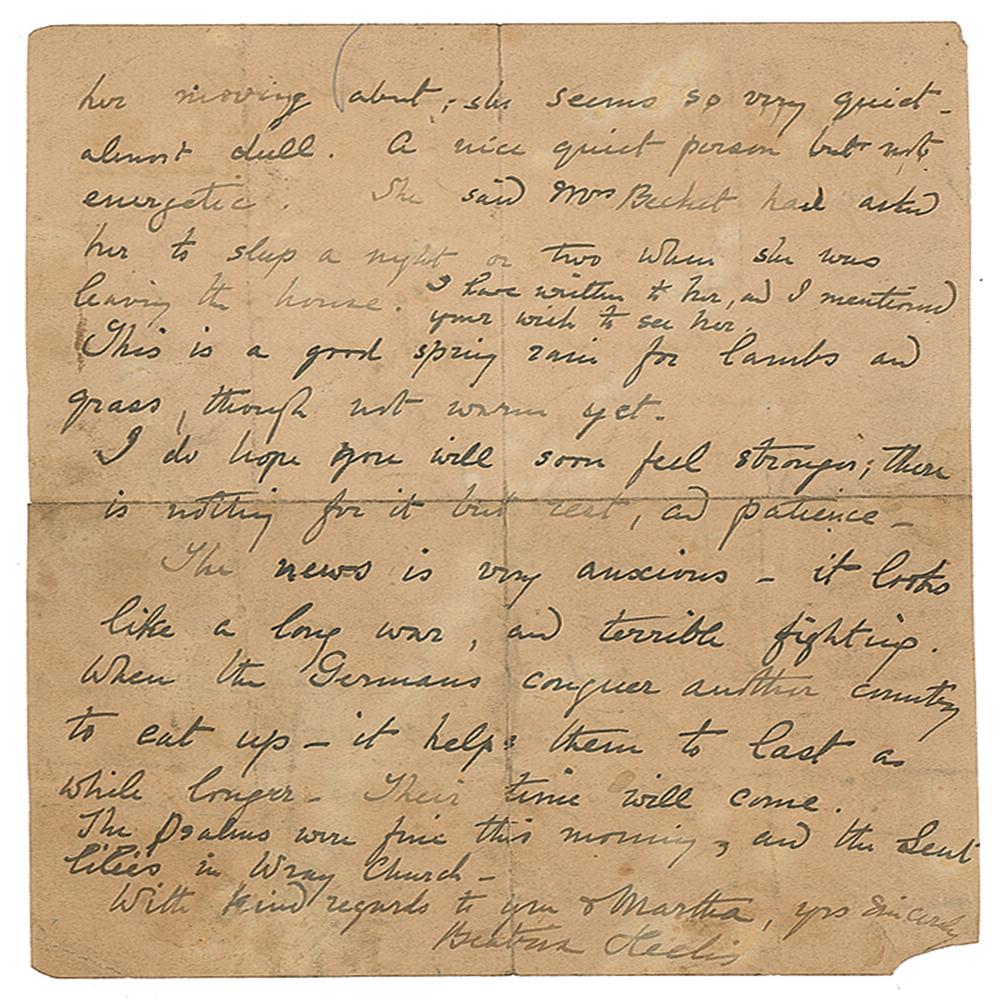 her moving about; she seems so very quiet -
almost dull. A nice quiet person but not
energetic. She said Mrs Becket had asked
her to sleep a night or two when she was
leaving the house. I have written to her, and I mentioned
your wish to see her.
This is a good spring rain for lambs and
grass, though not warm yet.
I do hope you will soon feel stronger; there
is nothing for it but rest, and patience -
The news is very anxious - it looks
like a long war, and terrible fighting.
When the Germans conquer another country
to eat up - it helps them to last a
while longer - Their time will come.
The Psalms were fine this morning, and the Lent
lilies in Wray Church -
With kind regards to you & Martha, yrs sincerely
Beatrix Heelis